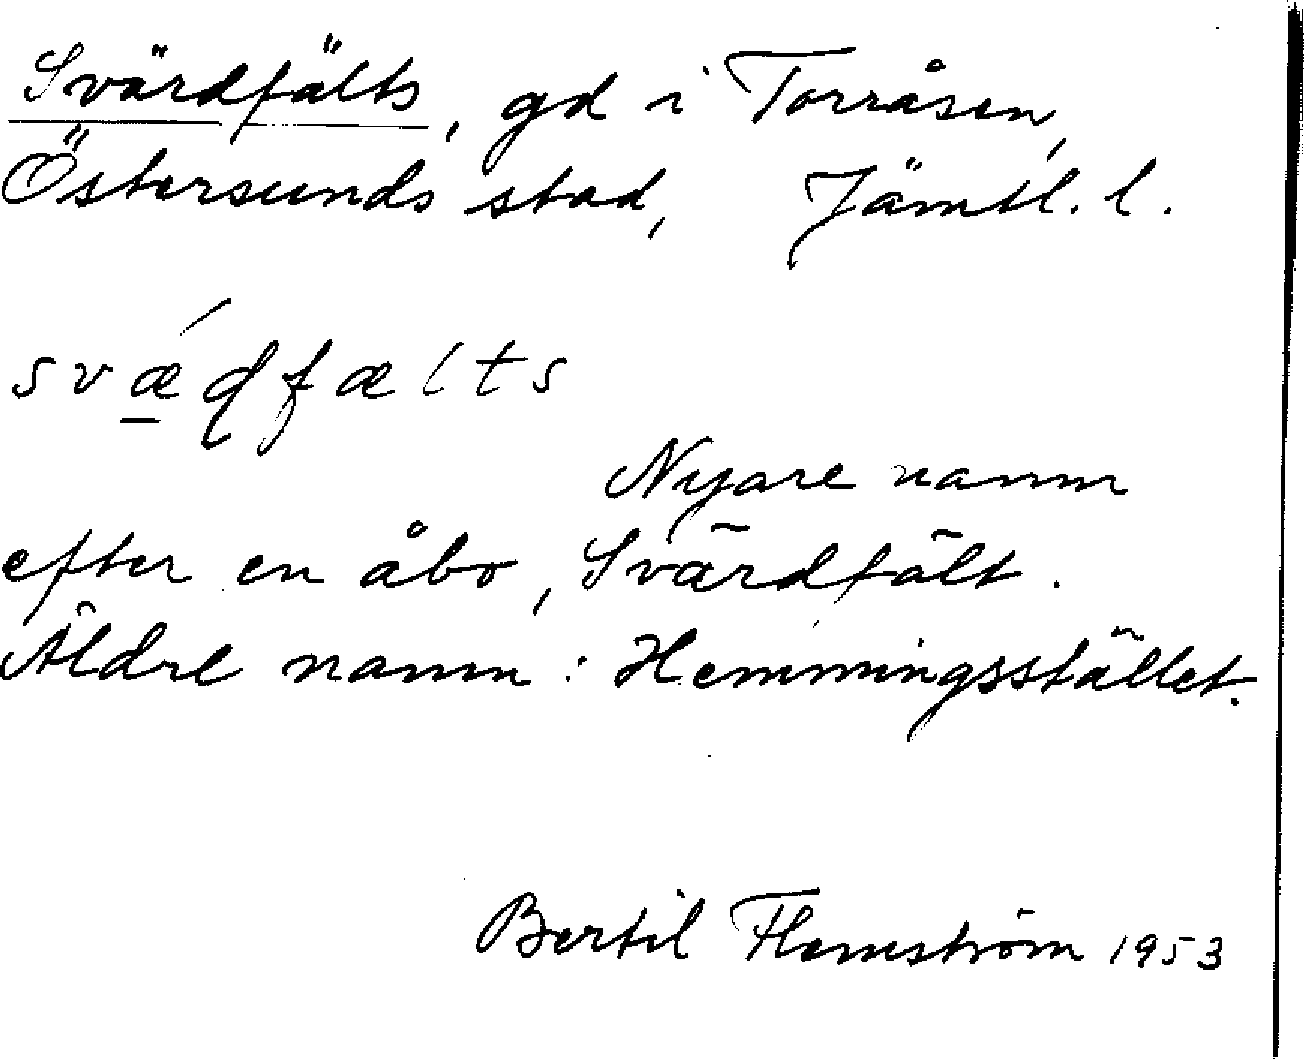 Svärdfälts, gd i Torråsen,
Östersunds stad, Jämtl. l.
svǽ̲ɖfælts
Nyare namn
efter en åbo, Svärdfält.
Äldre namn: Hemmingsstället.
Bertil Flemström 1953